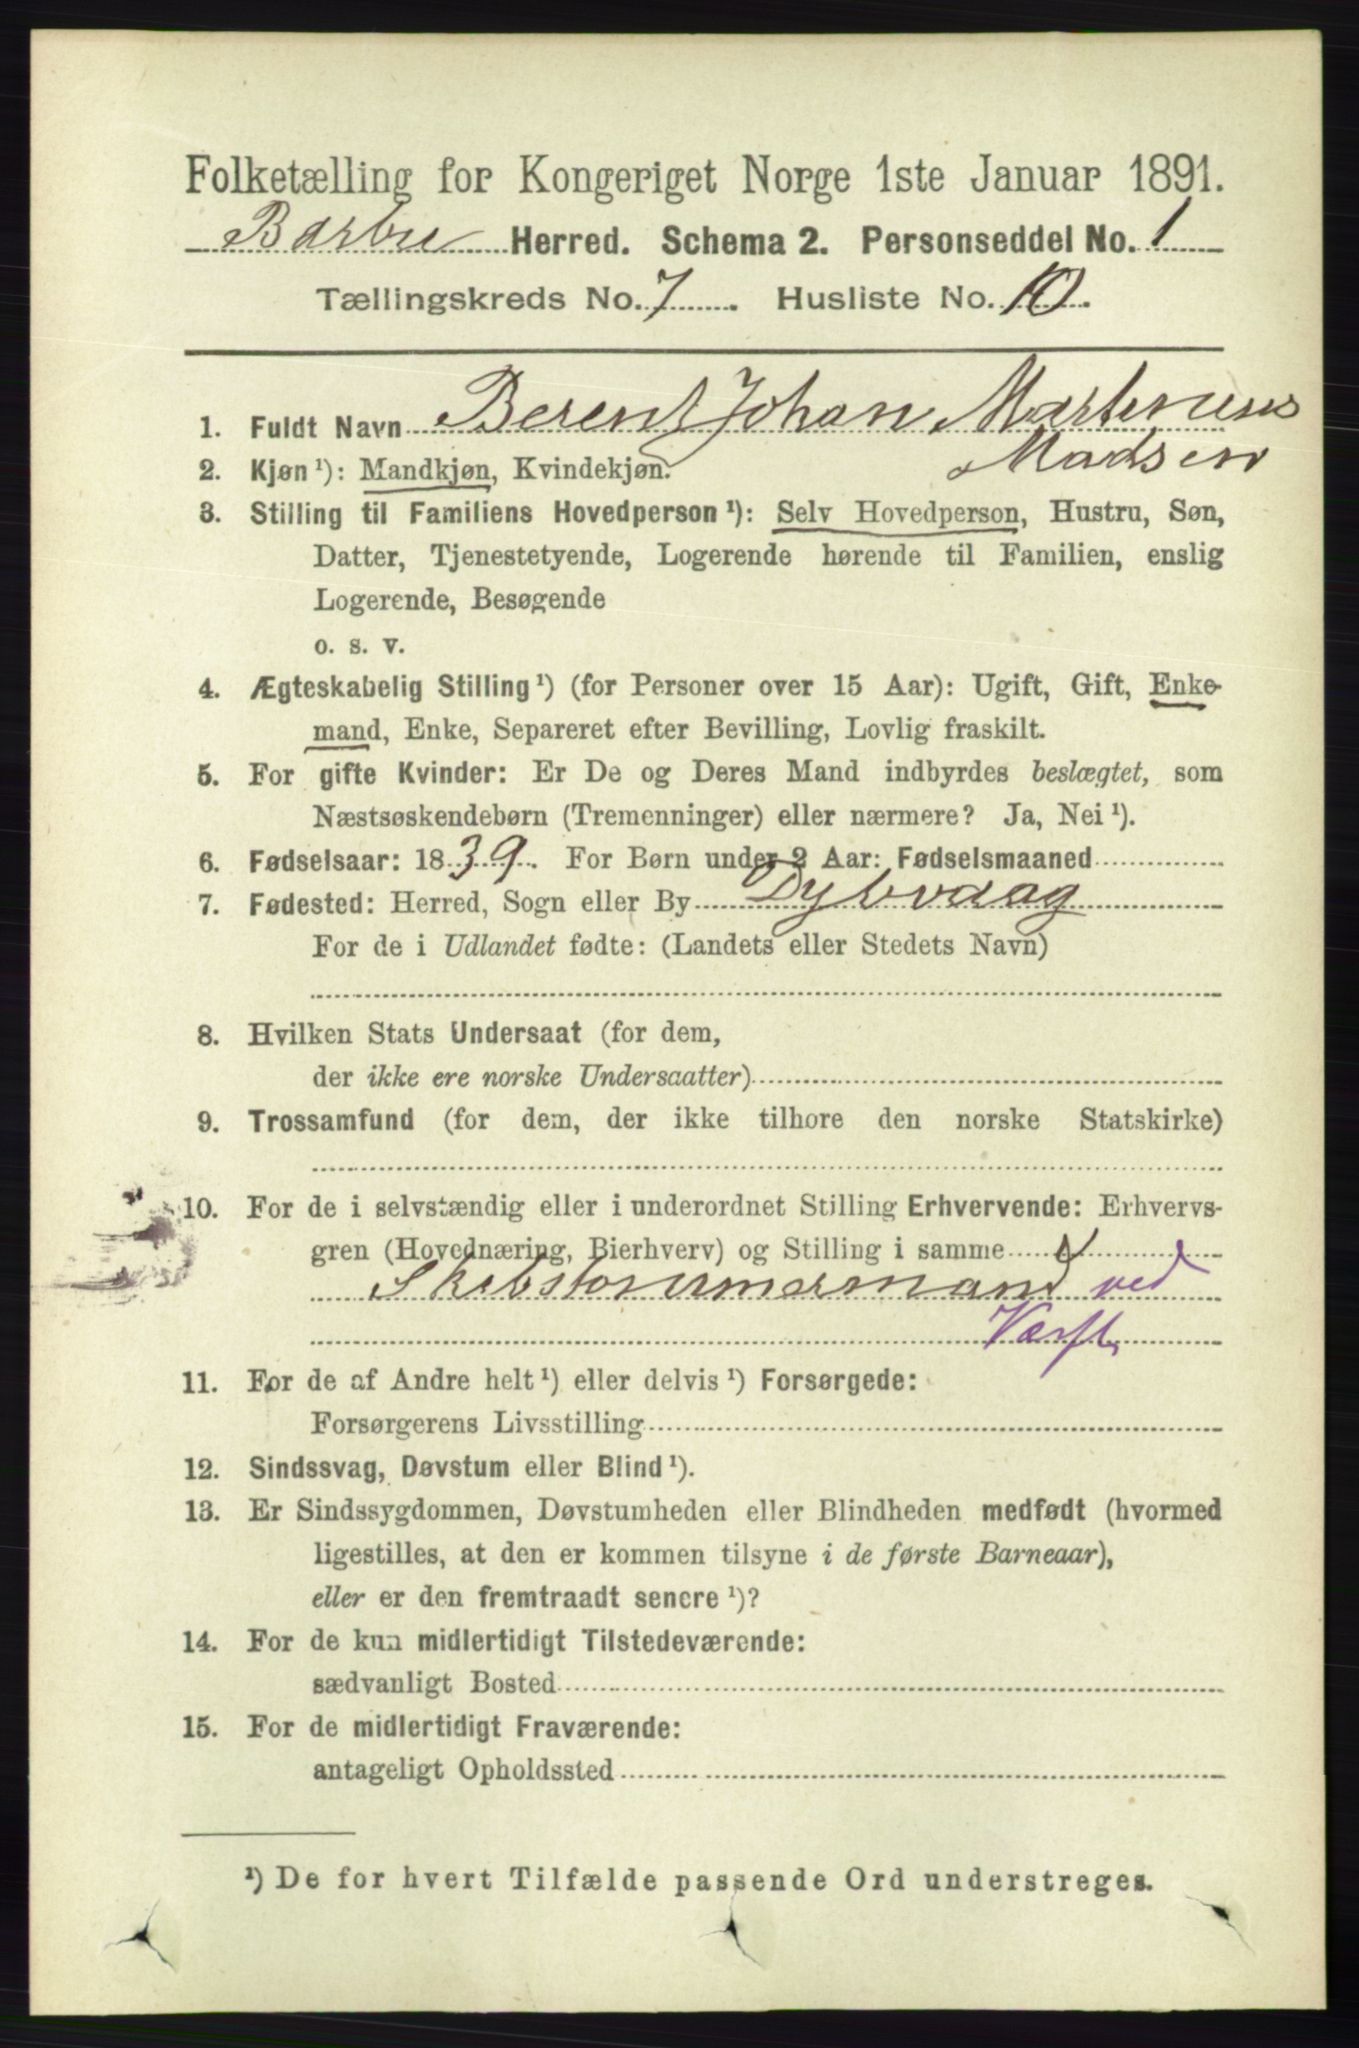 Folketælling for Kongeriget Norge 1ste Januar 1891.
Barbu Herred. Schema 2. Personseddel No. 1
Tællingskreds No. 7. Husliste No. 10.
1. Fuldt Navn Berent Johan Martinius
Madsen
2. Kjøn ¹): Mandkjøn, Kvindekjøn.
3. Stilling til Familiens Hovedperson ¹): Selv Hovedperson, Hustru, Søn,
Datter, Tjenestetyende, Logerende hørende til Familien, enslig
Logerende, Besøgende
o. s. v.
4. Ægteskabelig Stilling ¹) (for Personer over 15 Aar): Ugift, Gift, Enke-
mand, Enke, Separeret efter Bevilling, Lovlig fraskilt.
5. For gifte Kvinder: Er De og Deres Mand indbyrdes beslægtet, som
Næstsøskendebørn (Tremenninger) eller nærmere? Ja, Nei ¹).
6. Fødselsaar: 1839. For Børn under 2 Aar: Fødselsmaaned
7. Fødested: Herred, Sogn eller By Dybvaag
For de i Udlandet fødte: (Landets eller Stedets Navn)
8. Hvilken Stats Undersaat (for dem,
der ikke ere norske Undersaatter)
9. Trossamfund (for dem, der ikke tilhøre den norske Statskirke)
10. For de i selvstændig eller i underordnet Stilling Erhvervende: Erhvervs-
gren (Hovednæring, Bierhverv) og Stilling i samme
Skibstømmermand ved
Værft
11. For de af Andre helt ¹) eller delvis ¹) Forsørgede:
Forsørgerens Livsstilling
12. Sindssvag, Døvstum eller Blind ¹).
13. Er Sindssygdommen, Døvstumheden eller Blindheden medfødt (hvormed
ligestilles, at den er kommen tilsyne i de første Barneaar),
eller er den fremtraadt senere ¹)?
14. For de kun midlertidigt Tilstedeværende:
sædvanligt Bosted
15. For de midlertidigt Fraværende:
antageligt Opholdssted
¹) De for hvert Tilfælde passende Ord understreges.